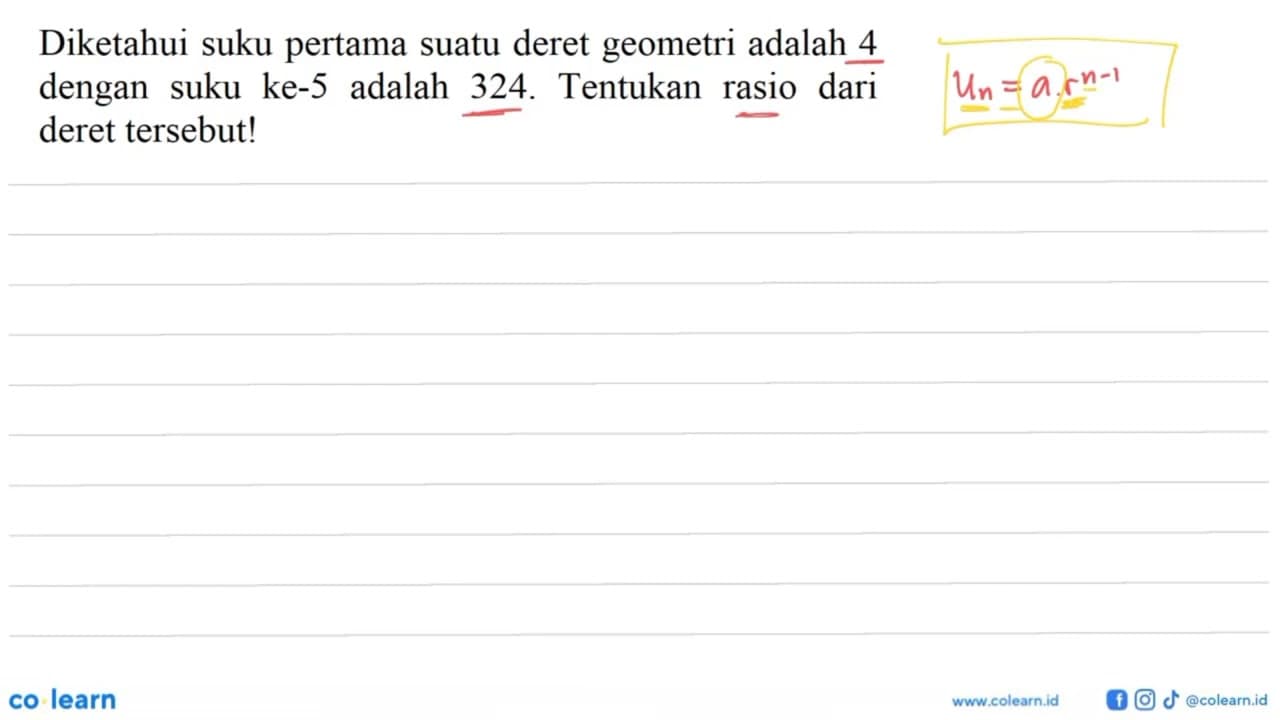 Diketahui suku pertama suatu deret geometri adalah 4
dengan suku ke-5 adalah 324. Tentukan rasio dari
deret tersebut!
Un = a.r^n-1
co learn
www.colearn.id
@colearn.id